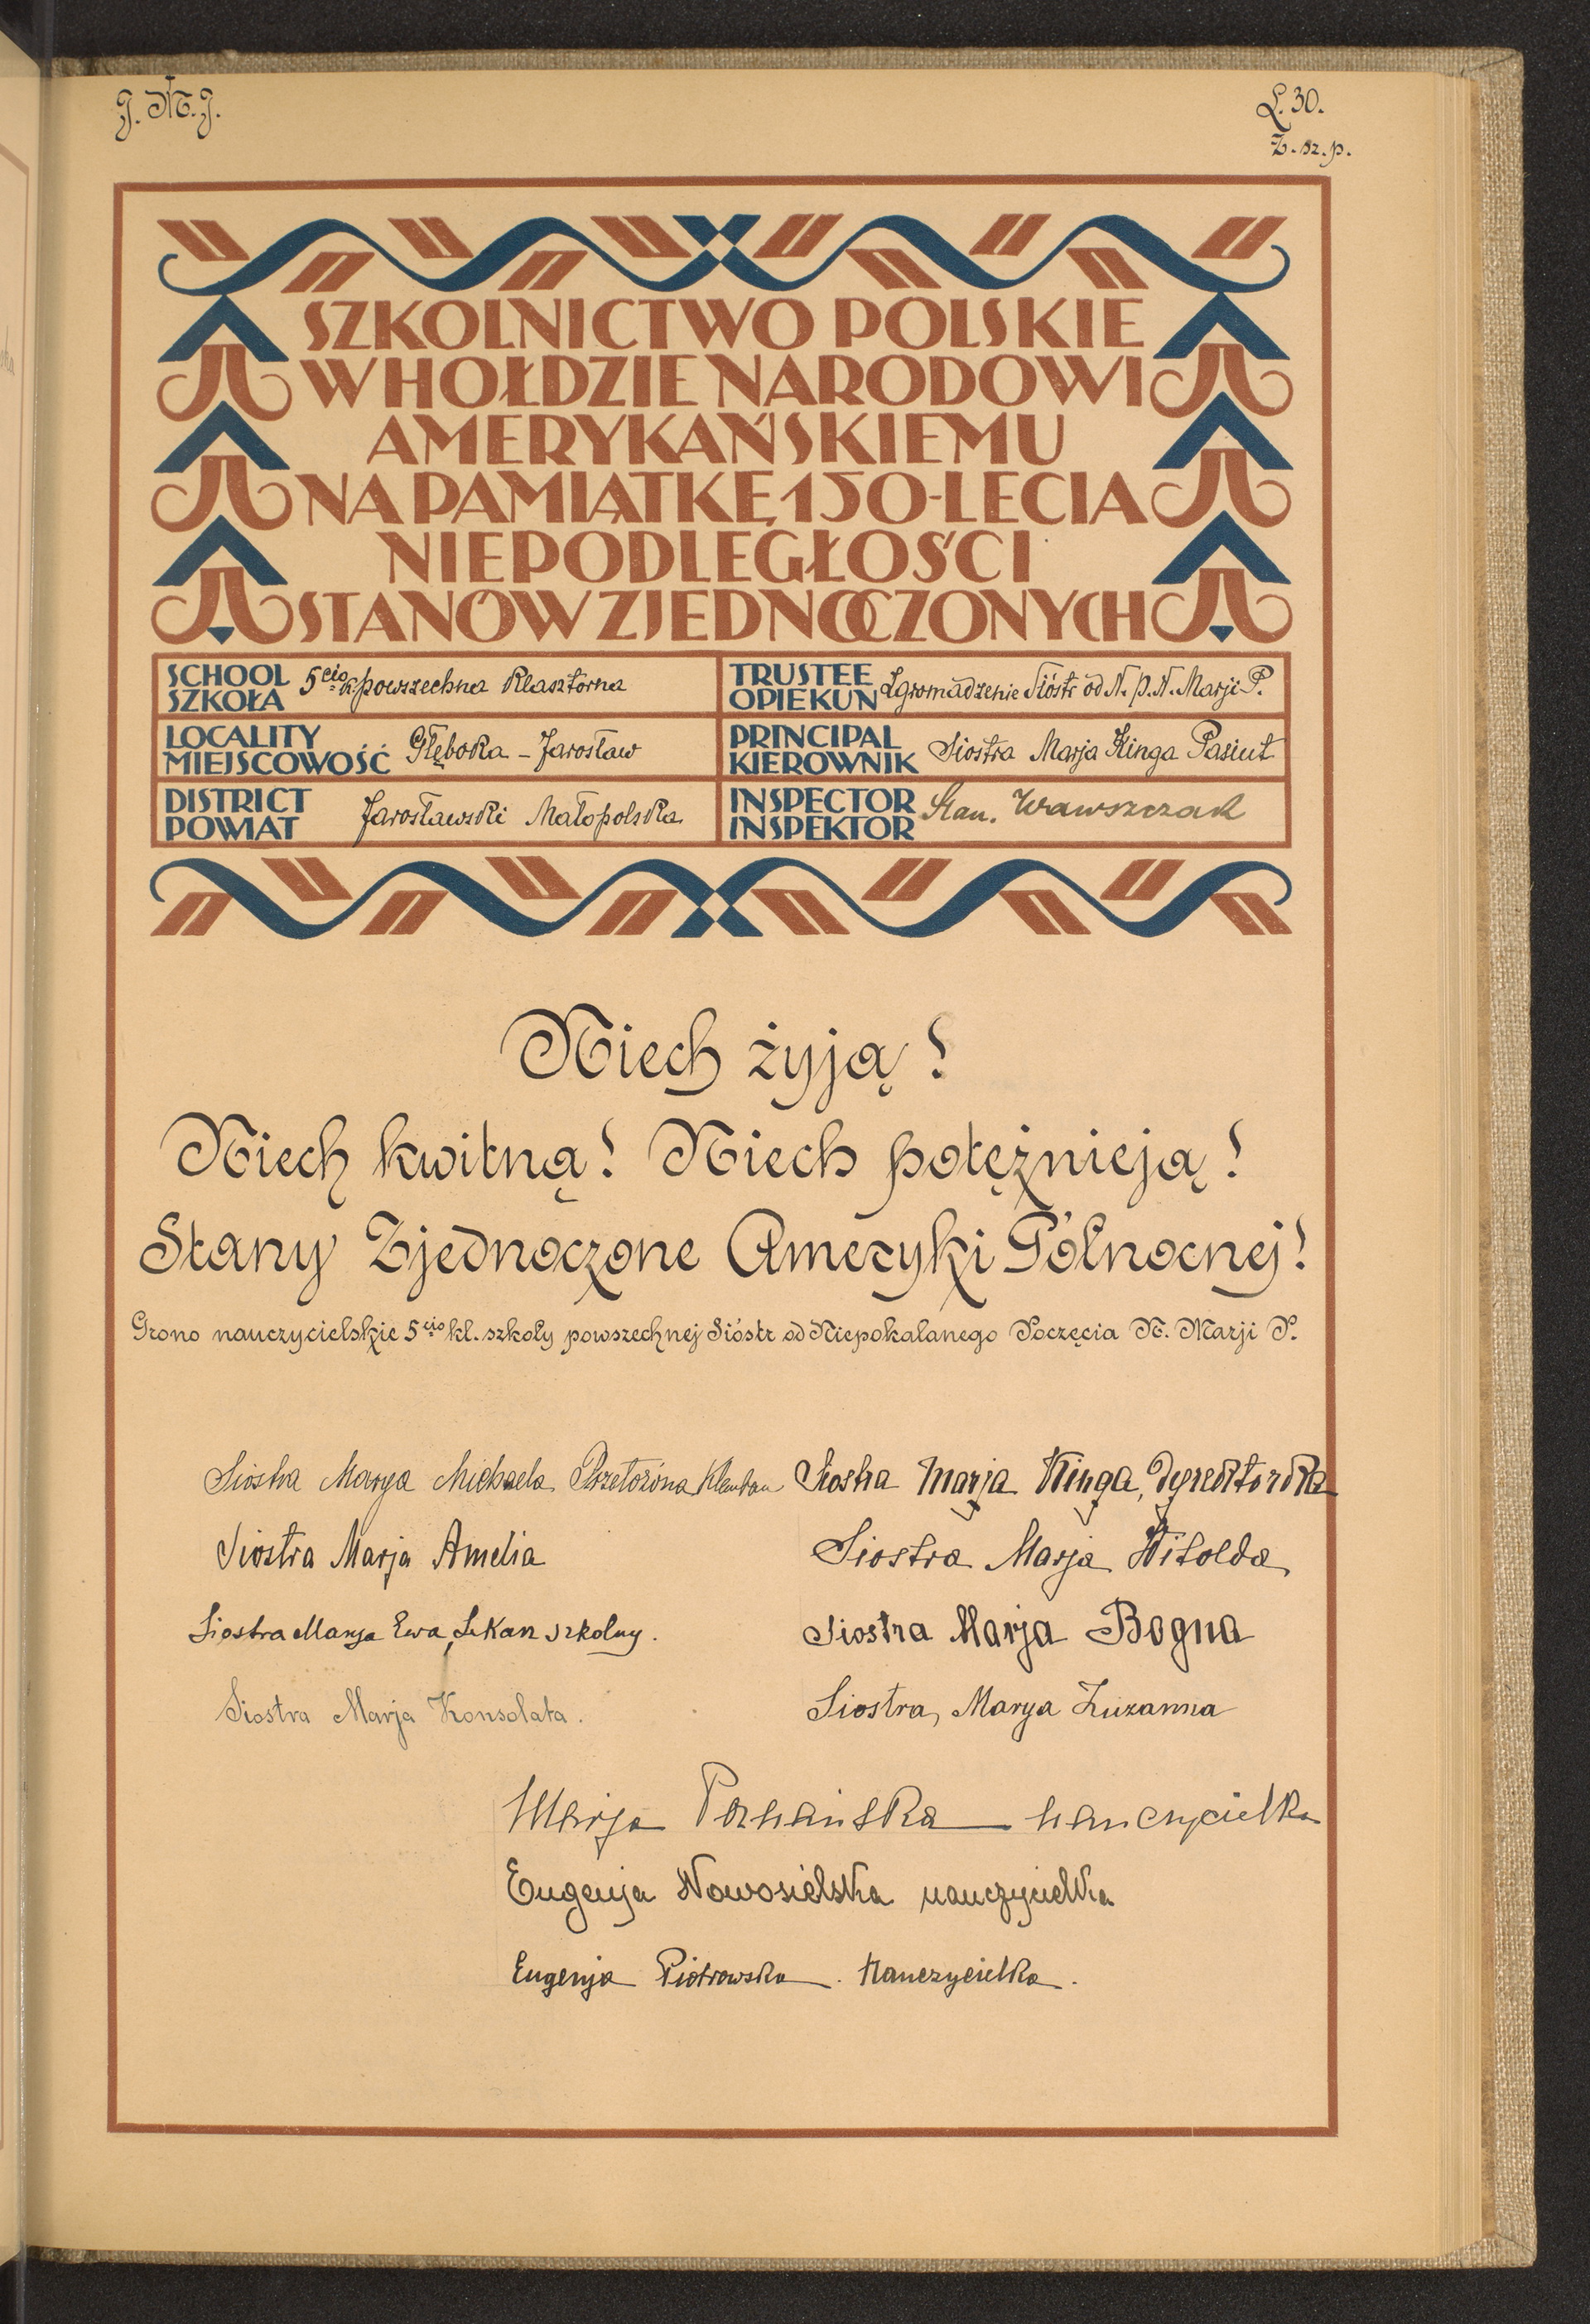 J. M. J.
L. 30.
Z. sz. p.
SZKOLNICTWO POLSKIE
W HOŁDZIE NARODOWI
AMERYKAŃSKIEMU
NA PAMIĄTKĘ 150-LECIA
NIEPODLEGŁOŚCI
STANÓW ZJEDNOCZONYCH
SCHOOL
SZKOŁA 5cio k. powszechna Klasztorna
TRUSTEE
OPIEKUN Zgromadzenie Sióstr od N. P. N. Marji P.
LOCALITY
MIEJSCOWOŚĆ Głęboka - Jarosław
PRINCIPAL
KIEROWNIK Siostra Marja Kinga Pasiut
DISTRICT
POWIAT Jarosławski Małopolska
INSPECTOR
INSPEKTOR Stan. Wawszczak
Niech żyją!
Niech kwitną! Niech potężnieją!
Stany Zjednoczone Ameryki Północnej!
Grono nauczycielskie 5cio kl. szkoły powszechnej Sióstr od Niepokalanego Poczęcia N. Marji P.
Siostra Marya Michaela Przełożona
Siostra Marja Kinga, Dyrektorka
Siostra Marja Amelia
Siostra Marja Witolda
Siostra Marja Ewa, szkolny.
Siostra Marja Bogna
Siostra Marja Konsolata.
Siostra, Marya Zuzanna
Marja nauczycielka
Eugenja Nowosielska nauczycielka
Eugenja Piotrowska. Nauczycielka.